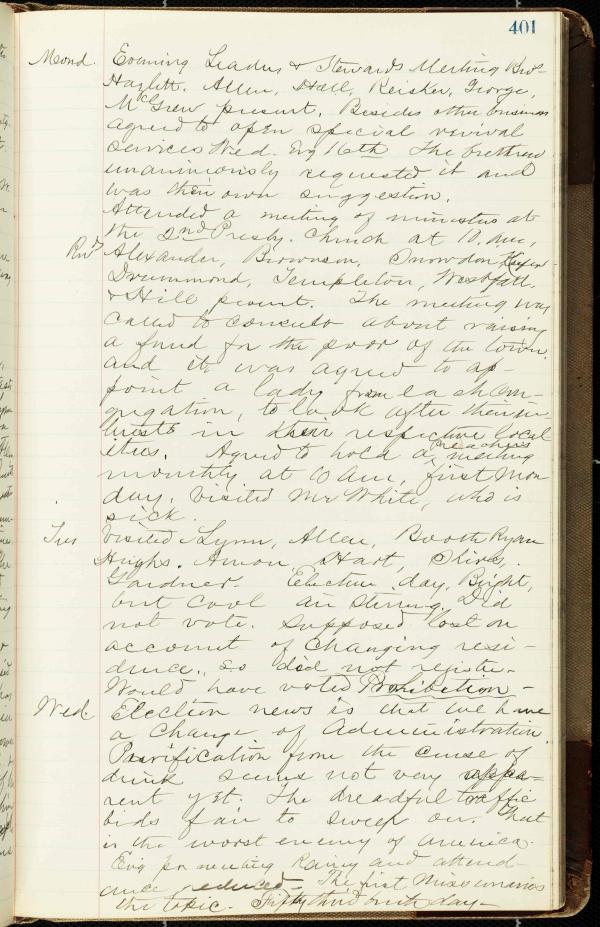 401
Mond. Evening Leaders & Stewards Meeting Bros-
Hazlett, Allen, Hall, Reisker, George,
McGrew present. Besides other business
agreed to open special revival
services Wed. Evg 16th The brethren
unanimously requested it and
was their own suggestion.
Attended a meeting of ministers at
the 2nd Presby. Church at 10. am,
Revds Alexander, Brownson, Snowdon
Drummond, Templeton, Westfall.
& Hill present. The meeting was
called to consult about raising
a fund for the poor of the town.
and it was agreed to ap-
point a lady from each Con-
gregation, to look after their in-
terests in their respective local
ities. Agreed to hold a preachers meeting
monthly at 10 am, first Mon
day. Visited Mr White, who is
sick.
Tues Visited Lynn, Allen, Booth Ryan
Hughs. Amon, Hart, Shires,
Gardner. Election day, Bright,
but cool air stirring. Did
not vote. Supposed lost on
account of changing resi-
dence, so did not register.
Would have voted Prohibition -
Wed. Election news is that we have
a change of Administration.
Purification from the curse of
drink seems not very appa-
rent yet. The dreadful traffic
bids fair to sweep on. That
is the worst enemy of America.
Evg pr meeting Rainy and attend-
ance reduced - The first Missionaries
the topic. Fifty third birth day -